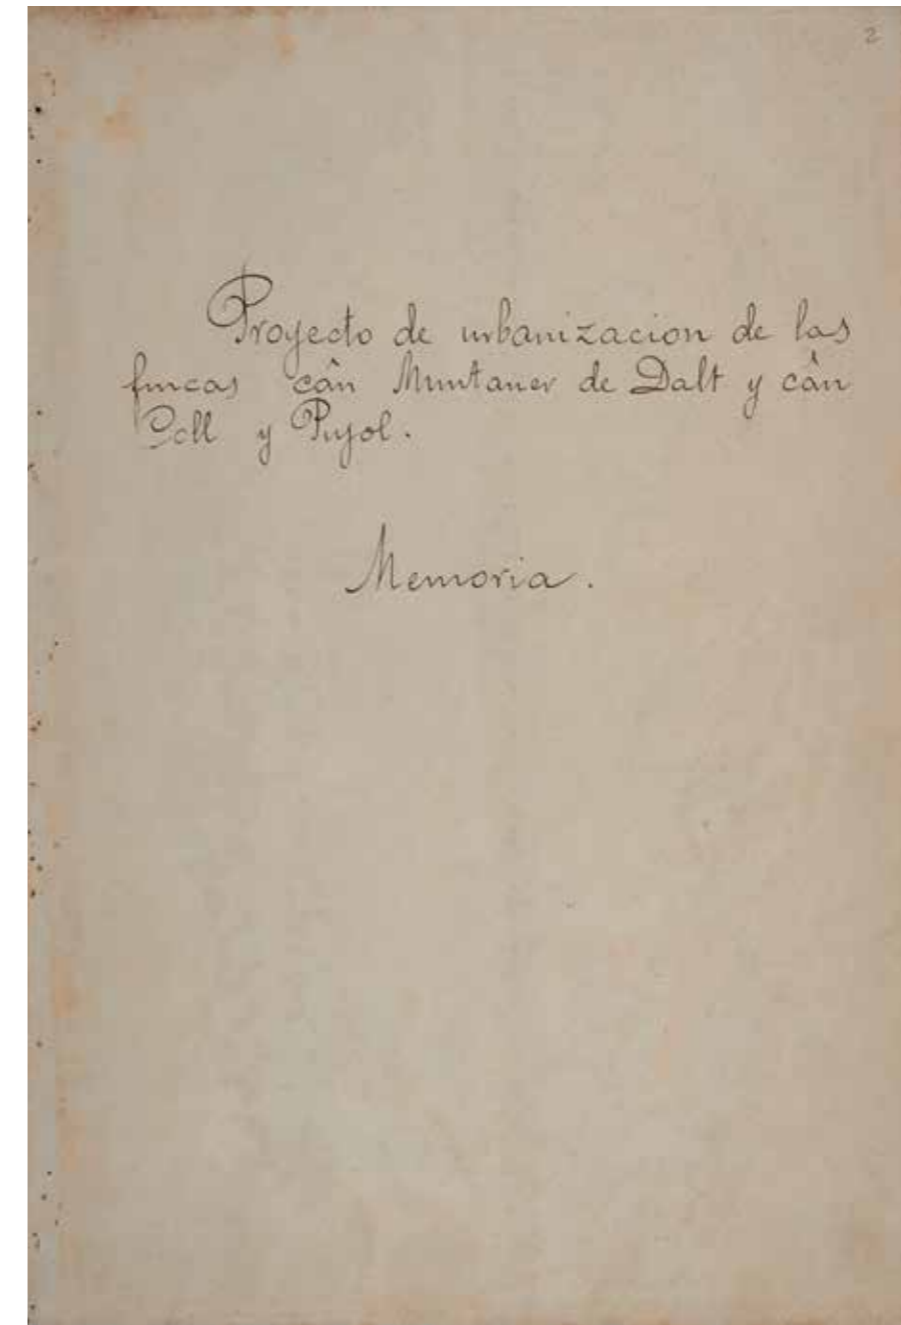 2
Proyecto de urbanizacion de las
fincas cân Muntaner de Dalt y cân
Coll y Pujol.
Memoria.